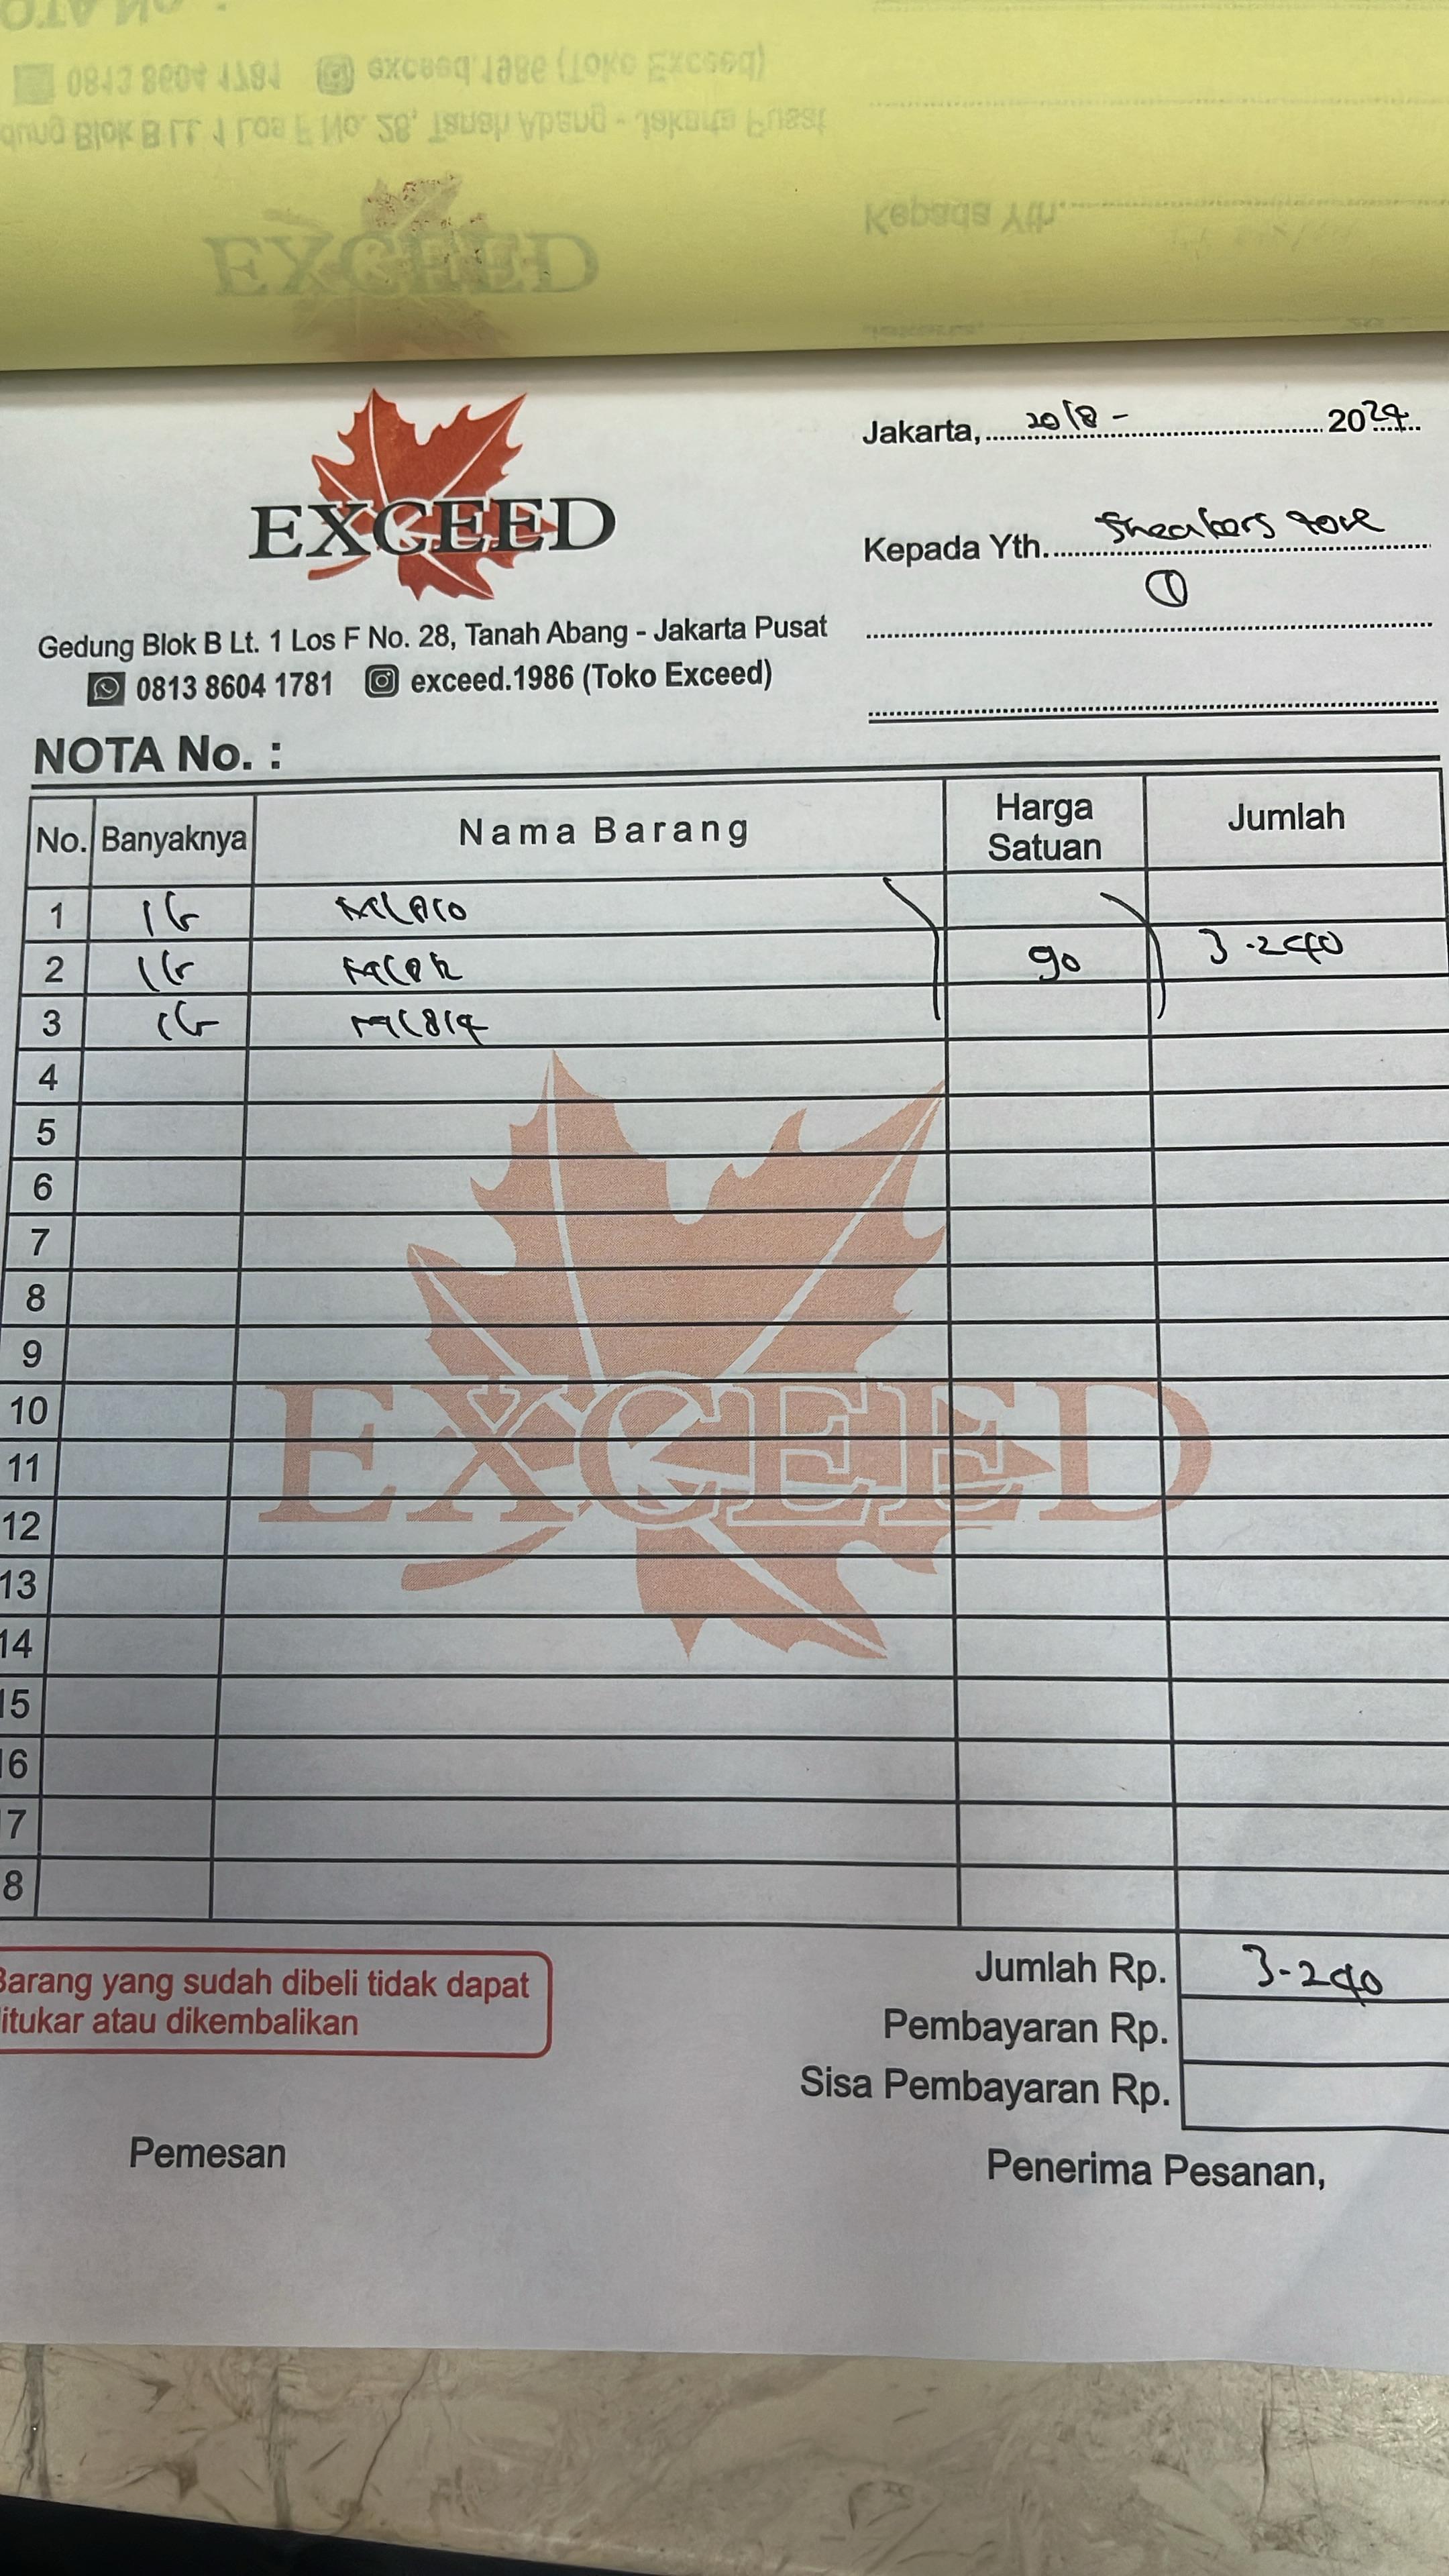 0813 8604 1781 exceed.1986 (Toko Exceed)
Blok B Lt. 1 Los F No. 28, Tanah Abang - Jakarta Pusat
Kepada Yth.
EXCEED
EXCEED
Jakarta, 20/8 - 2024
Kepada Yth. Sneakers
1
Gedung Blok B Lt. 1 Los F No. 28, Tanah Abang - Jakarta Pusat
0813 8604 1781 exceed.1986 (Toko Exceed)
NOTA No. :
No. Banyaknya Nama Barang Harga Satuan Jumlah
1
2 90 3.240
3
4
5
6
7
8
9
10
EXCEED
11
12
13
14
15
16
7
8
Barang yang sudah dibeli tidak dapat
itukar atau dikembalikan
Jumlah Rp. 3-240
Pembayaran Rp.
Sisa Pembayaran Rp.
Pemesan
Penerima Pesanan,